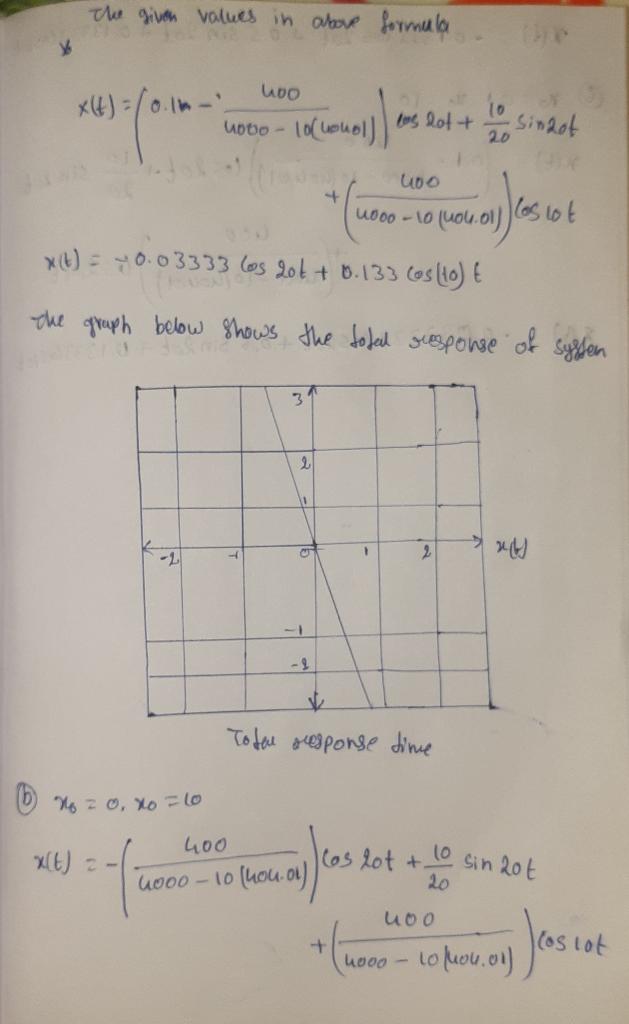 The given values in above formula
x(t) = (0.1m - 400 / 4000 - 10(404.01)) cos 20t + 10/20 sin 20t
+ (400 / 4000 - 10(404.01)) cos 10t
x(t) = -0.03333 cos 20t + 0.133 cos(10) t
The graph below shows the total response of system
3
2
1
-2 -1 0 1 2 x(t)
-1
-2
Total response time
(b) x0 = 0, x0 = 10
x(t) = -(400 / 4000 - 10(404.01)) cos 20t + 10/20 sin 20t
+ (400 / 4000 - 10(404.01)) cos 10t